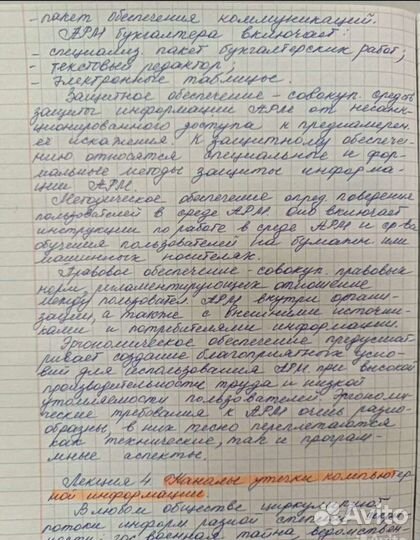 - пакет обеспечения коммуникаций.
АРМ бухгалтера включает:
- специализ. пакет бухгалтерских работ;
- текстовый редактор;
- электронные таблицы.
Защитное обеспечение - совокуп. средств
защиты информации АРМ от несанк-
ционированного доступа к преднамерен.
её искажения. К защитному обеспече-
нию относятся специальные и фор-
мальные методы защиты информа-
ции АРМ.
Методическое обеспечение опред. поведение
пользователей в среде АРМ. Оно включает
инструкции по работе в среде АРМ и ср-ва
обучения пользователей на бумажн. или
машинных носителях.
Правовое обеспечение - совокуп. правовых
норм, регламентирующих отношение
между пользоват. АРМ внутри органи-
зации, а также с внешними источни-
ками и потребителями информации.
Эргономическое обеспечение предусмат-
ривает создание благоприятных усло-
вий для использования АРМ при высокой
производительности труда и низкой
утомляемости пользователей. Эргономи-
ческие требования к АРМ очень разно-
образны, в них тесно переплетаются
как технические, так и програм-
мные аспекты.
Лекция 4. Каналы утечки компьютер-
ной информации.
В любом обществе циркулируют
потоки информ. разной степени
военная тайна, ведомствен
Avito